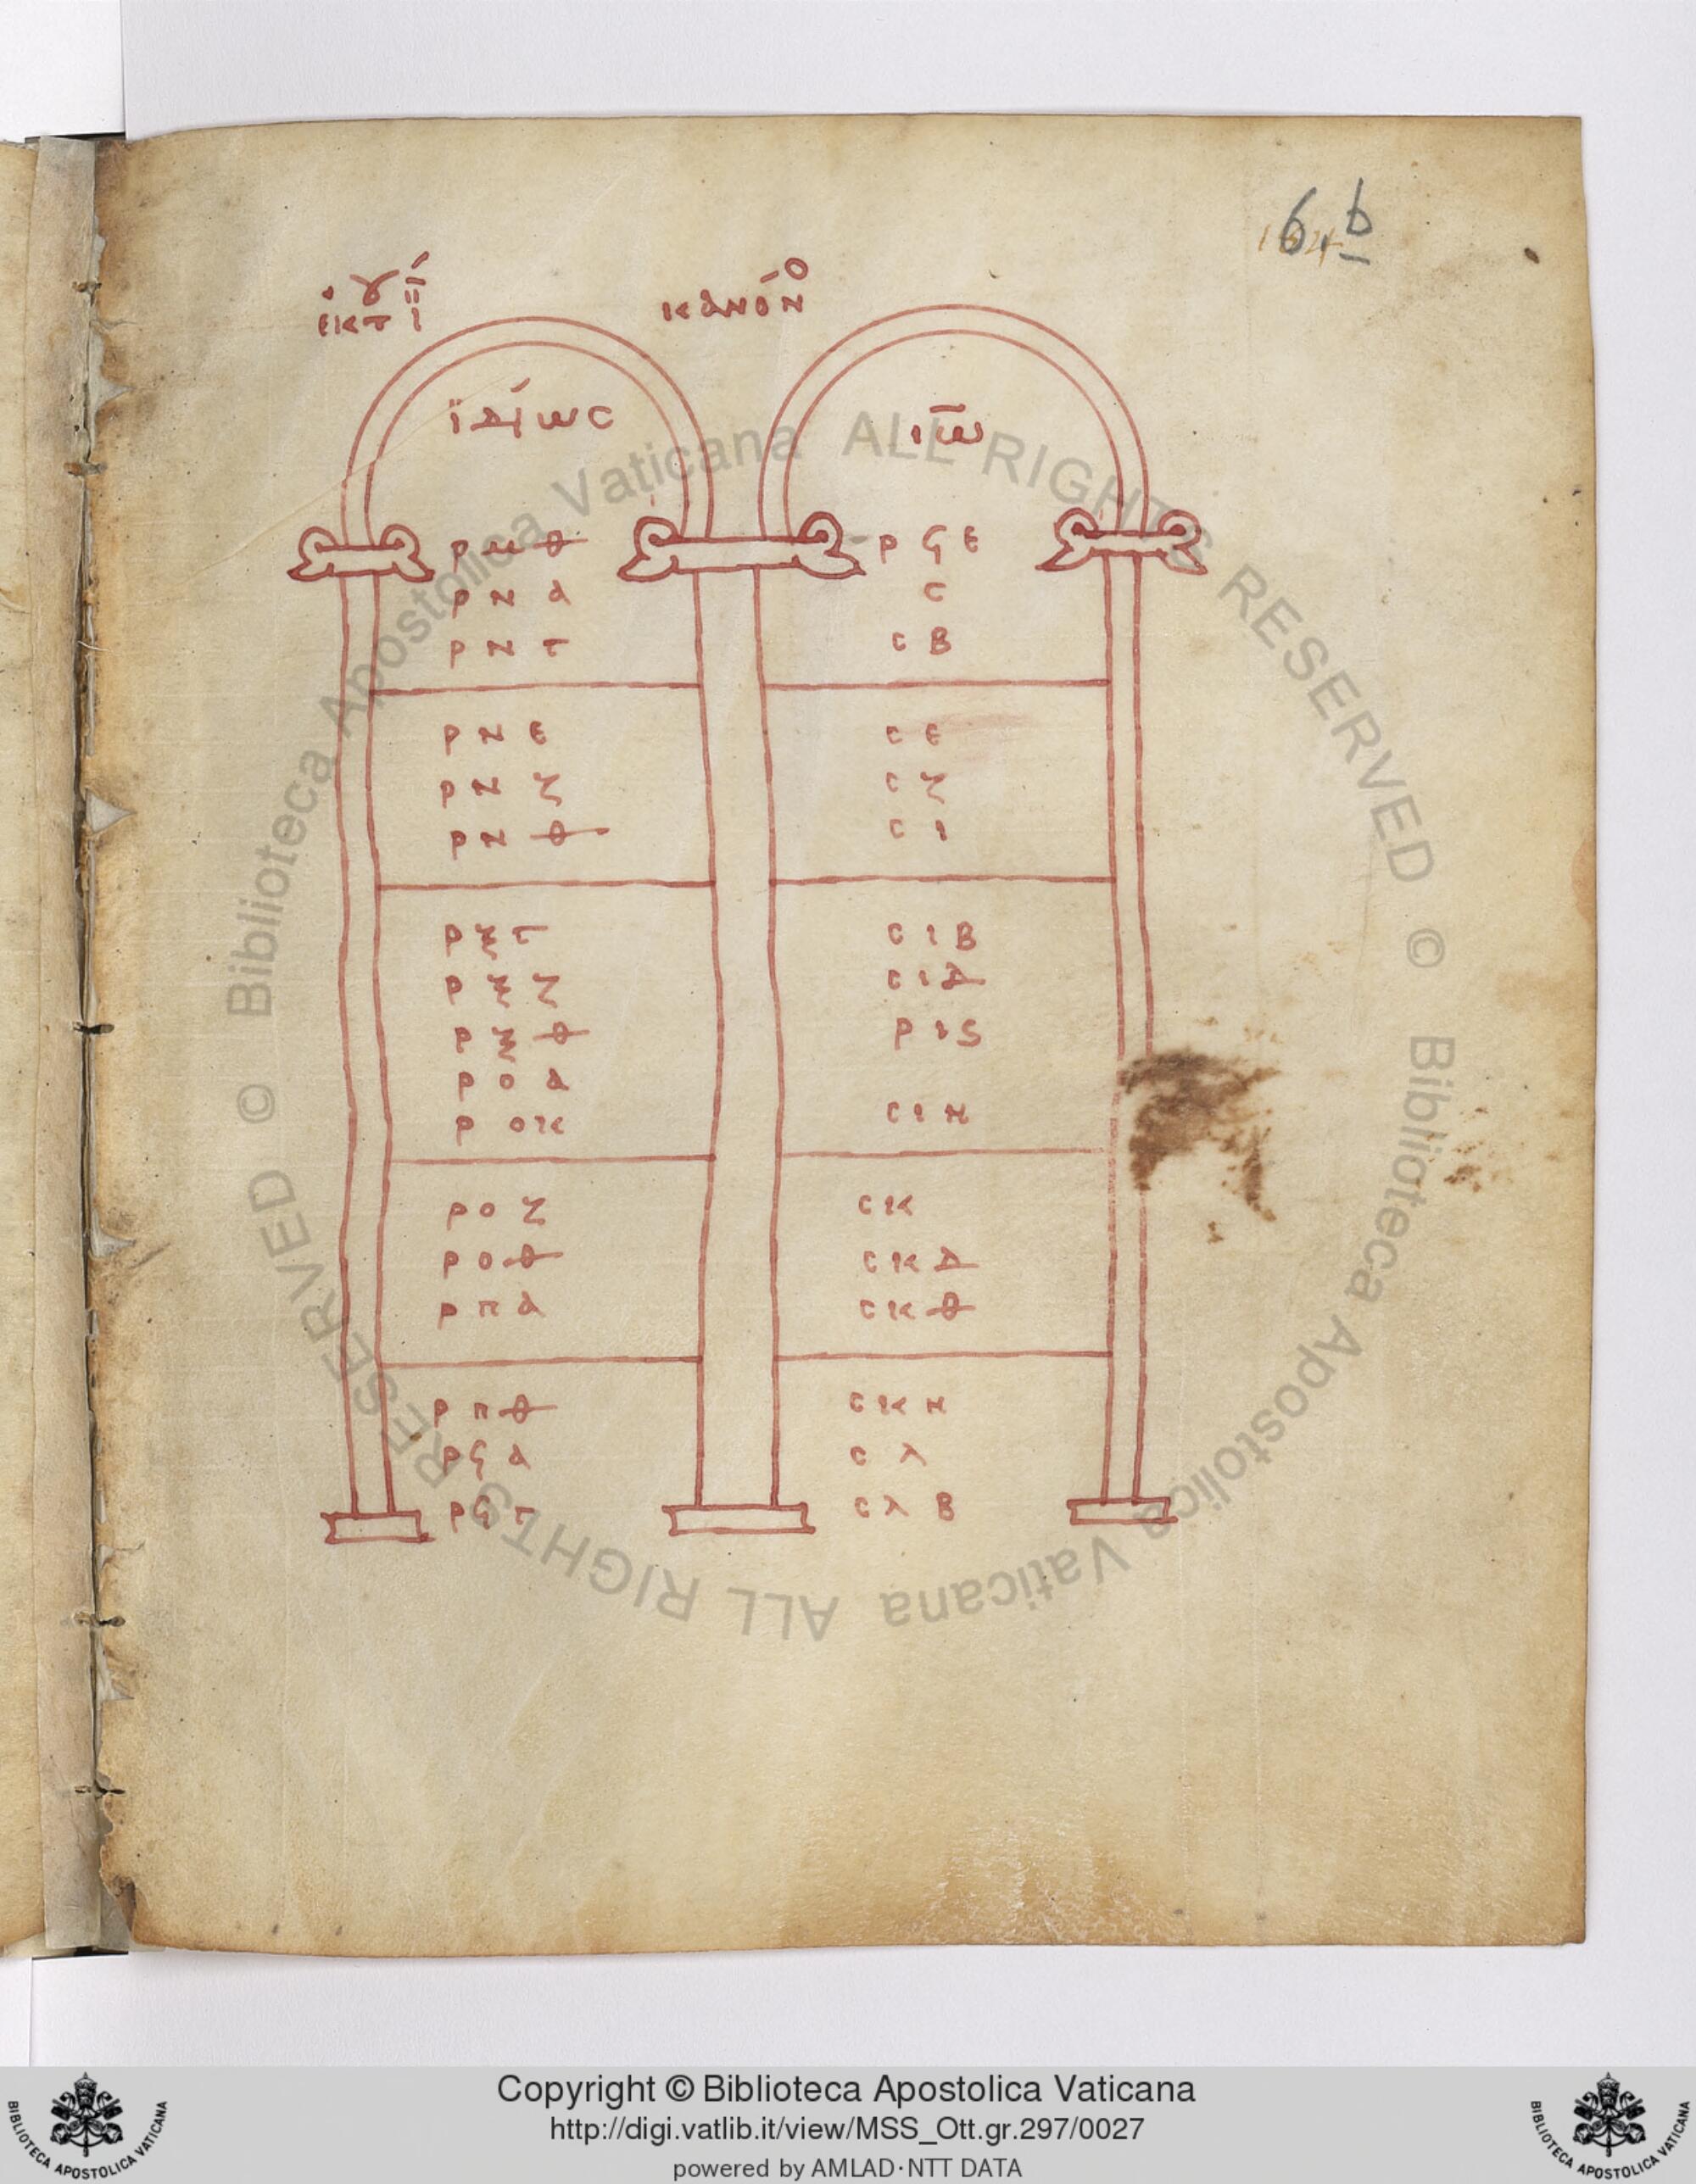 6.b
ἐκ τοῦ ιʹ κανόνο
ϊδίως
ιω̅
ρμθ
ρνα
ρνγ
ρνε
ρνζ
ρνθ
ρξγ
ρξζ
ρξθ
ροα
ροκ
ροζ
ροθ
ρπα
ρπθ
ρϟα
ρϟγ
ρϟε
σ
σβ
σε
σζ
σι
σιβ
σιδ
ριϛ
σιη
σκ
σκδ
σκθ
σκη
σλ
σλβ
© Biblioteca Apostolica Vaticana ALL RIGHTS RESERVED © Biblioteca Apostolica Vaticana ALL RIGHTS RESERVED
Copyright © Biblioteca Apostolica Vaticana
http://digi.vatlib.it/view/MSS_Ott.gr.297/0027
powered by AMLAD·NTT DATA
BIBLIOTECA APOSTOLICA VATICANA
BIBLIOTECA APOSTOLICA VATICANA